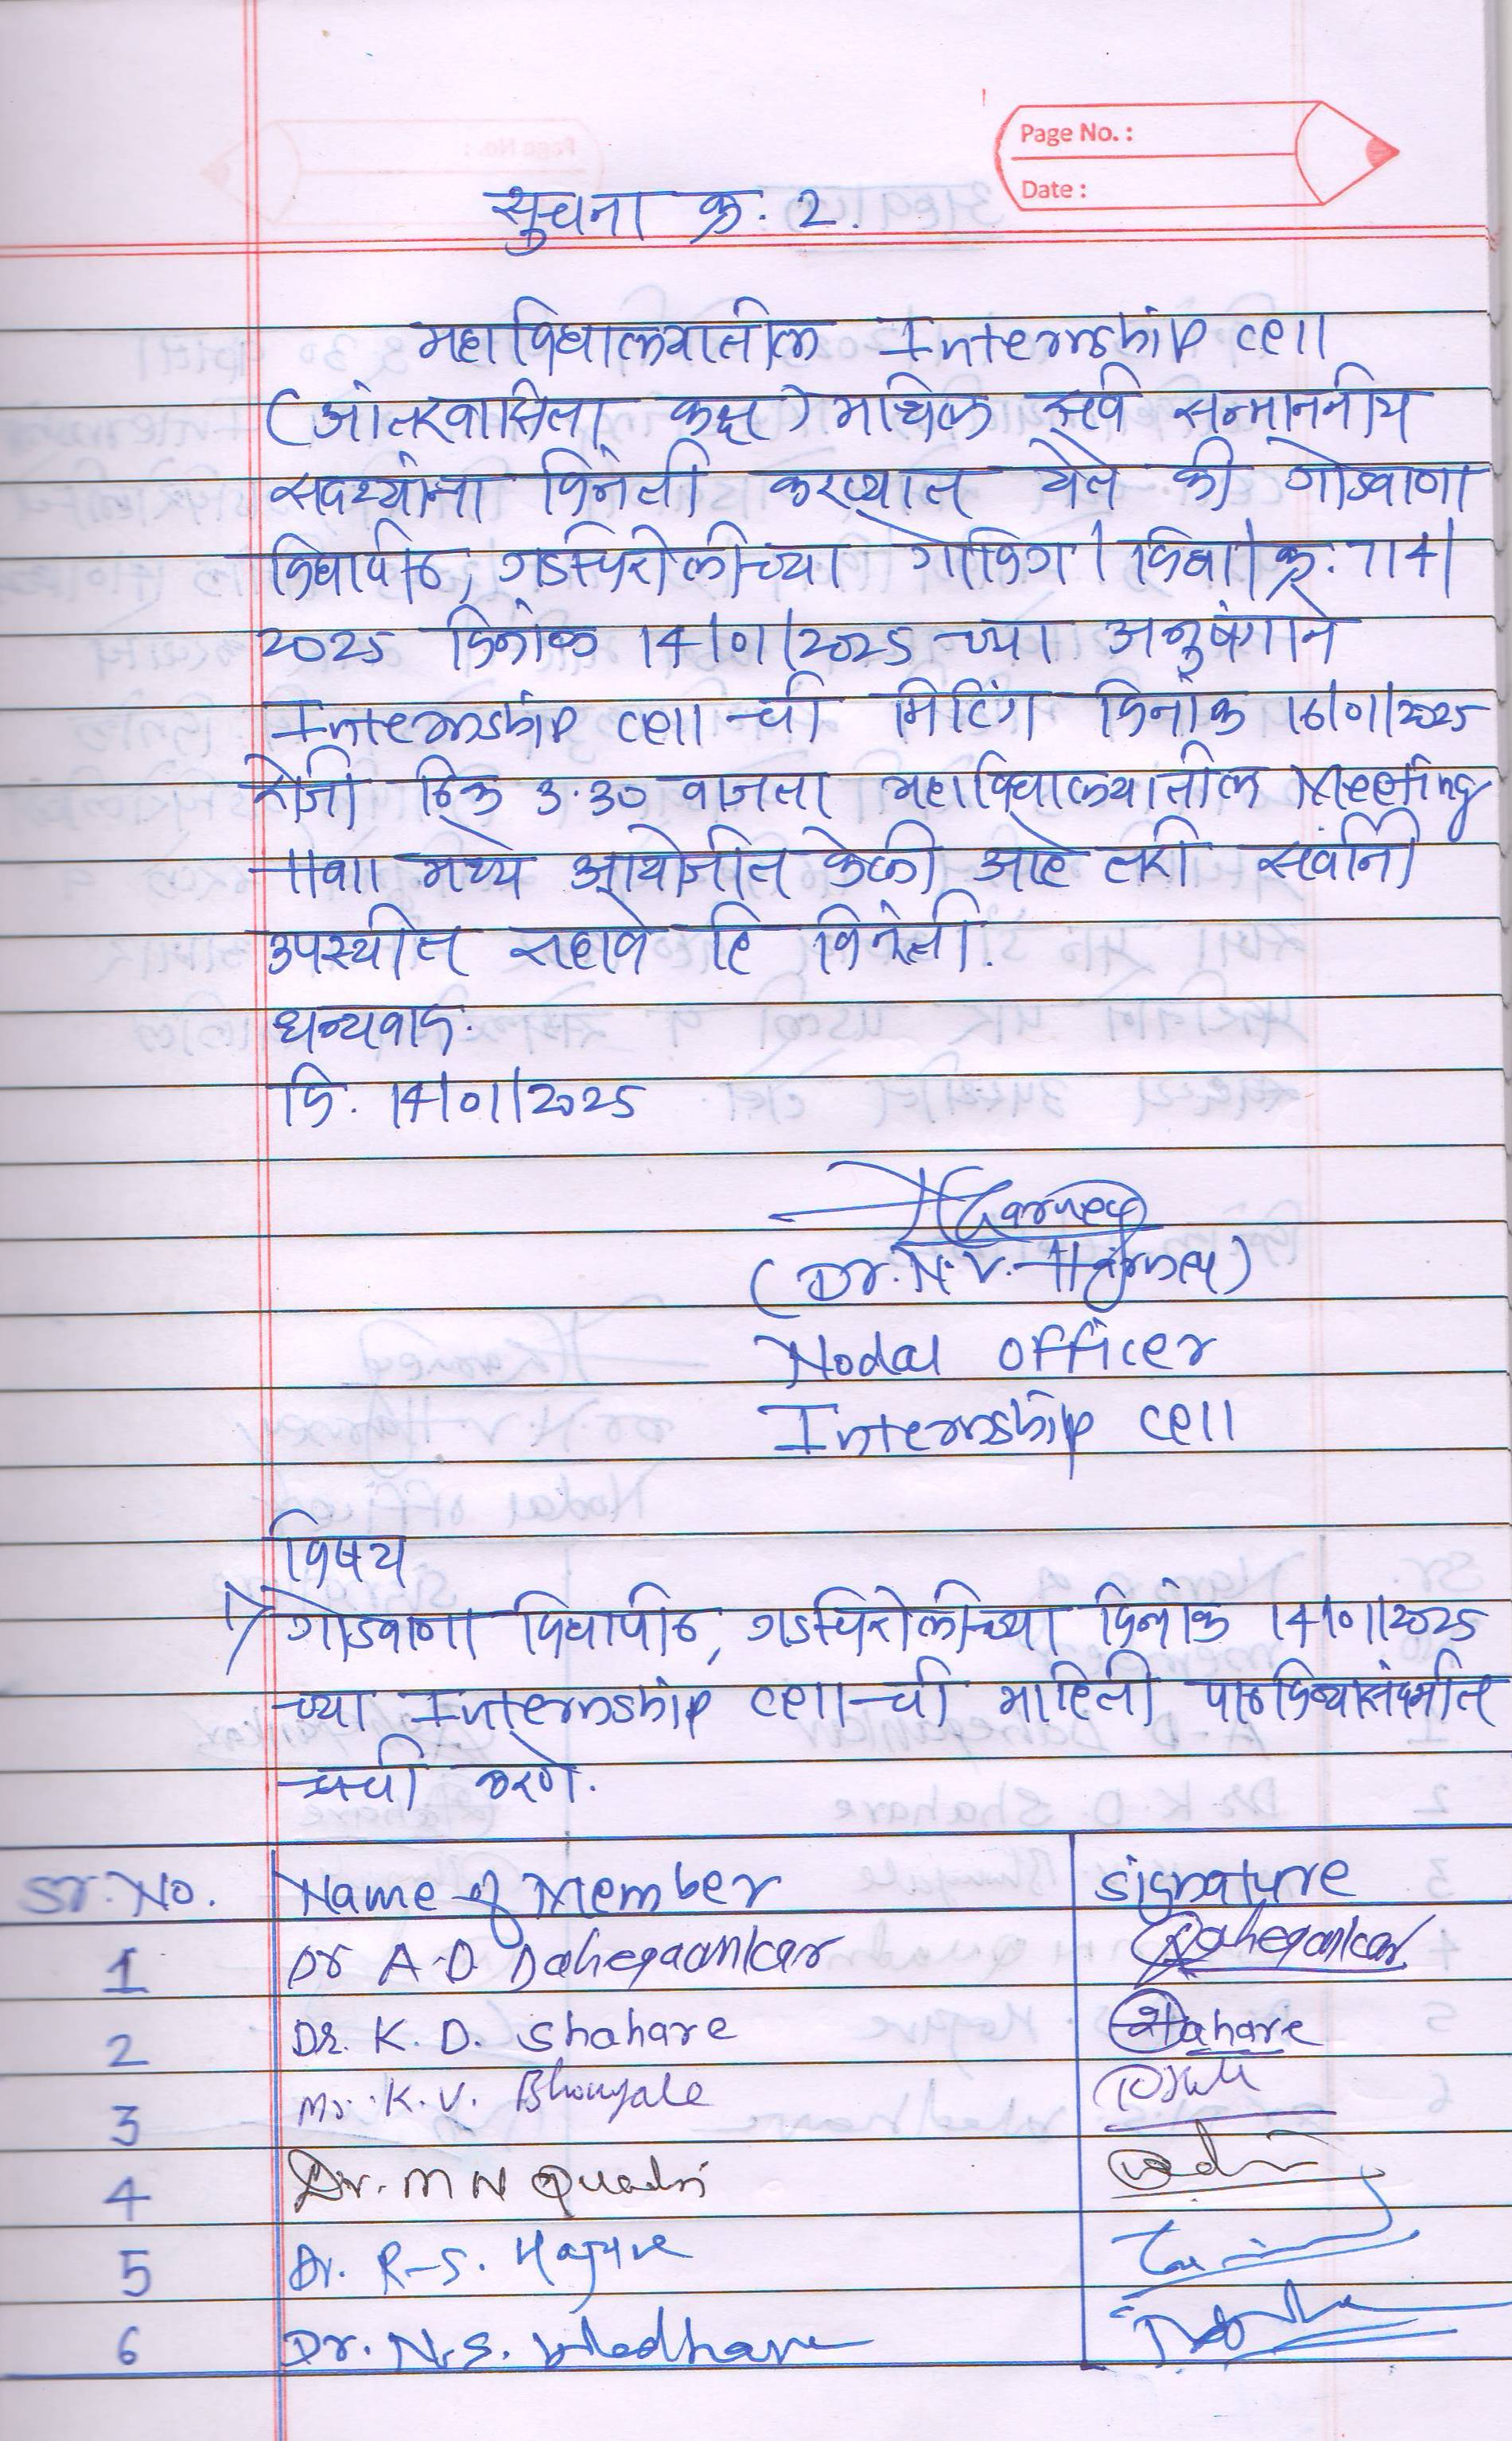 Page No. :
Date :
सुचना क्र. 2.
महाविद्यालयातील Internship cell
(आंतरवासिता कक्ष) मधिल सर्व सन्माननीय
सदस्यांना विनंती करण्यात येते की गोंडवाना
विद्यापीठ, गडचिरोलीच्या गोंविग / विद्या / क्र. 714/
2025 दिनांक 14/01/2025 च्या अनुषंगाने
Internship cell ची मिटिंग दिनांक 16/01/2025
रोजी ठिक 3.30 वाजता महाविद्यालयातील Meeting
Hall मध्ये आयोजीत केली आहे तरी सर्वांनी
उपस्थीत राहावे हि विनंती.
धन्यवाद.
दि. 14/01/2025
(Dr. N. V. Harney)
Nodal officer
Internship cell
विषय
1) गोंडवाना विद्यापीठ, गडचिरोलीच्या दिनांक 14/01/2025
च्या Internship cell ची माहिती पाठविण्यासंदर्भात
चर्चा करणे.
Sr. No. Name of Member signature
1 Dr A. D. Dahegaonkar Dahegaonkar
2 Dr. K. D. Shahare Shahare
3 Mr. K. V. Bhoyale
4 Dr. M N Quadri
5 Dr. R. S. Hajare
6 Dr. N. S. Wadhave